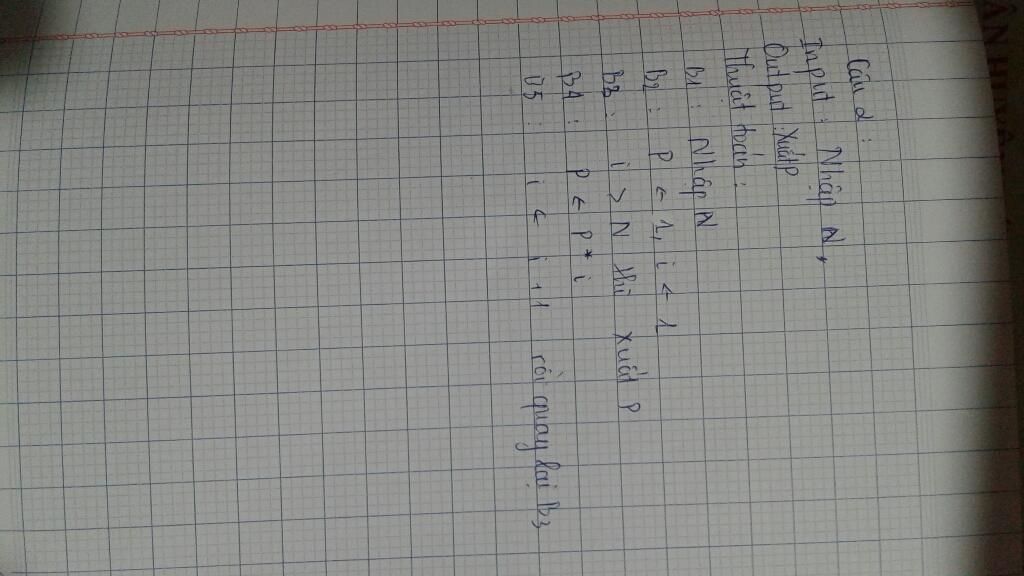 Câu 2 :
Input : Nhập N,
Output : Xuất P
Thuật toán :
B1 : Nhập N
B2 : P ← 1, i ← 1
B3 : i > N thì xuất P
B4 : P ← P * i
B5 : i ← i + 1 rồi quay lại B3